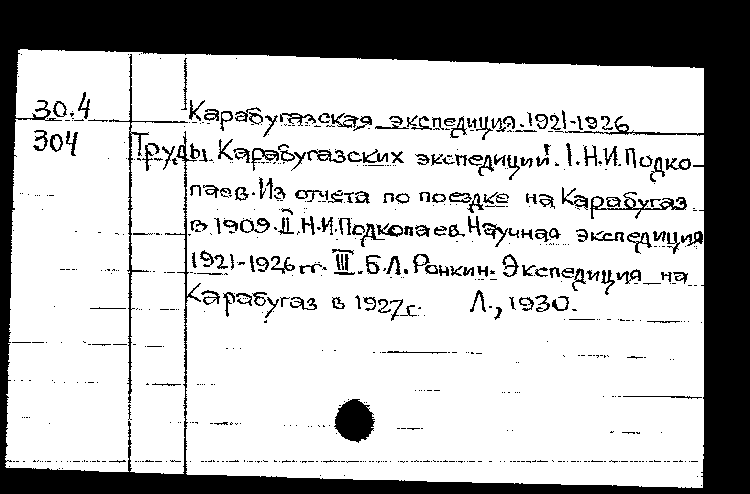 30.4 Карабугазская экспедиция. 1921-1926
304 Труды Карабугазских экспедиций. I. Н.И. Подко-
паев. Из отчета по поездке на Карабугаз
в 1909. II Н.И. Подкопаев. Научная экспедиция
1921-1926 гг. III. Б.Л. Ронкин. Экспедиция на
Карабугаз в 1927 г. Л., 1930.